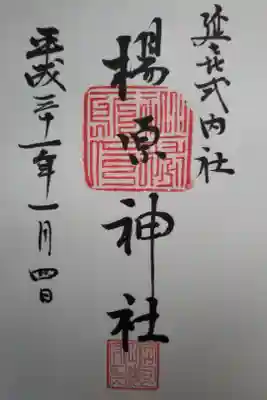 延喜式内社
楊原神社
平成三十一年一月四日